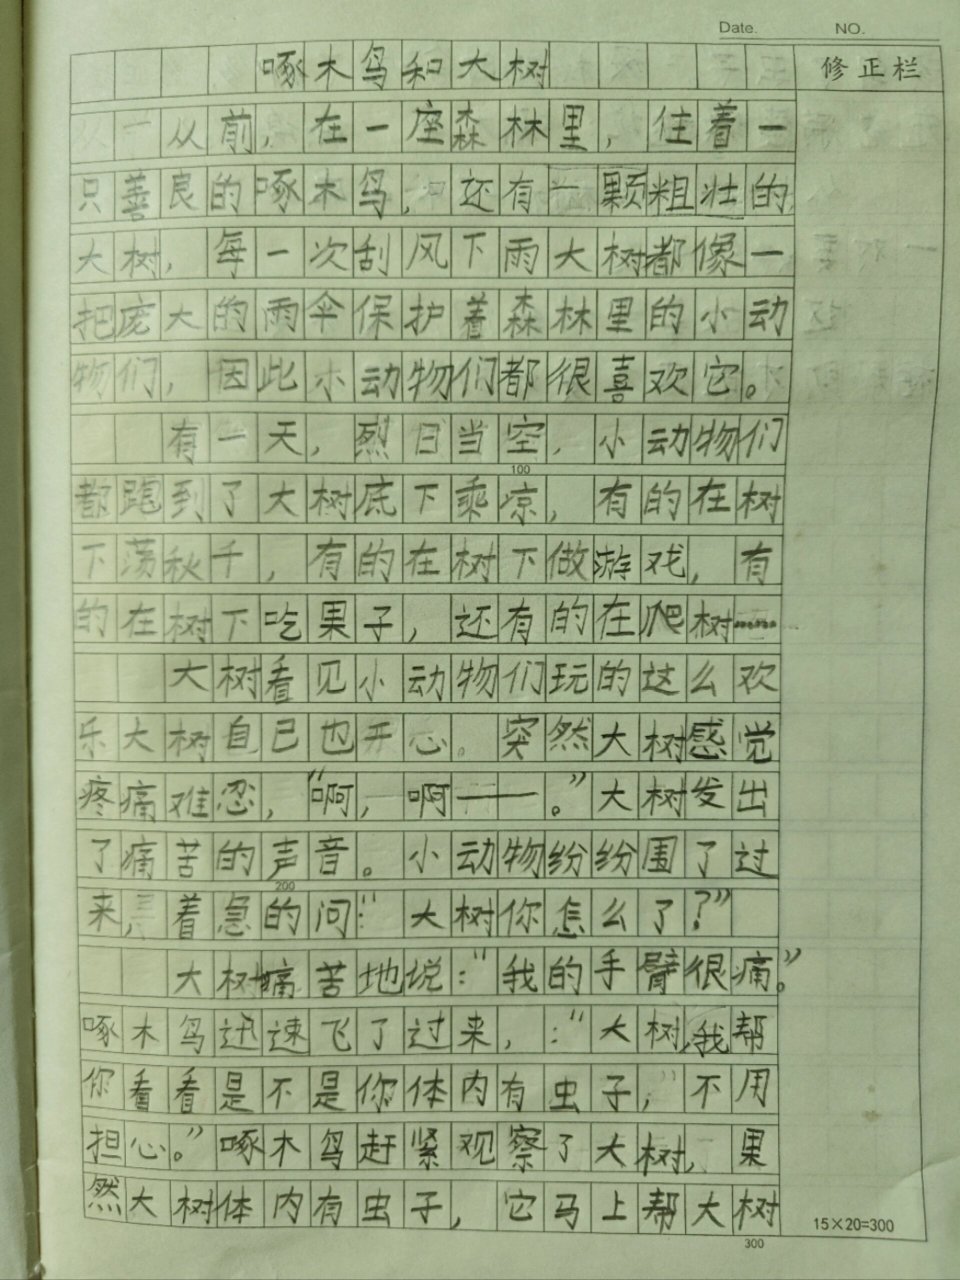 Date. NO.
啄木鸟和大树
修正栏
从前，在一座森林里，住着一
只善良的啄木鸟，还有一颗粗壮的
大树，每一次刮风下雨大树都像一
把庞大的雨伞保护着森林里的小动
物们，因此小动物们都很喜欢它。
有一天，烈日当空，小动物们
100
都跑到了大树底下乘凉，有的在树
下荡秋千，有的在树下做游戏，有
的在树下吃果子，还有的在爬树……
大树看见小动物们玩的这么欢
乐大树自己也开心。突然大树感觉
疼痛难忍，“啊，啊——。”大树发出
了痛苦的声音。小动物纷纷围了过
200
来，着急的问：“大树你怎么了？”
大树痛苦地说：“我的手臂很痛。”
啄木鸟迅速飞了过来，：“大树，我帮
你看看是不是你体内有虫子，不用
担心。”啄木鸟赶紧观察了大树，果
然大树体内有虫子，它马上帮大树
15×20=300
300